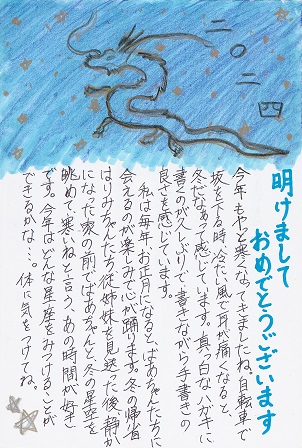 二〇二四
明けまして
おめでとうございます
今年もやっと寒くなってきましたね。自転車で
坂を下る時、冷たい風で耳が痛くなると、
冬だなあって感じています。真っ白なハガキに
書くのが久しぶりで、書きながら手書きの
良さを感じています。
私は毎年、お正月になると、ばあちゃんたちに
会えるのが楽しみで心が踊ります。冬の帰省
はりみちゃんたち従姉妹を見送った後、静か
になった家の前でばあちゃんと、冬の星空を
眺めて、寒いねと言う、あの時間が好き
です。今年はどんな星座をみつけることが
できるかな…。体に気をつけてね。